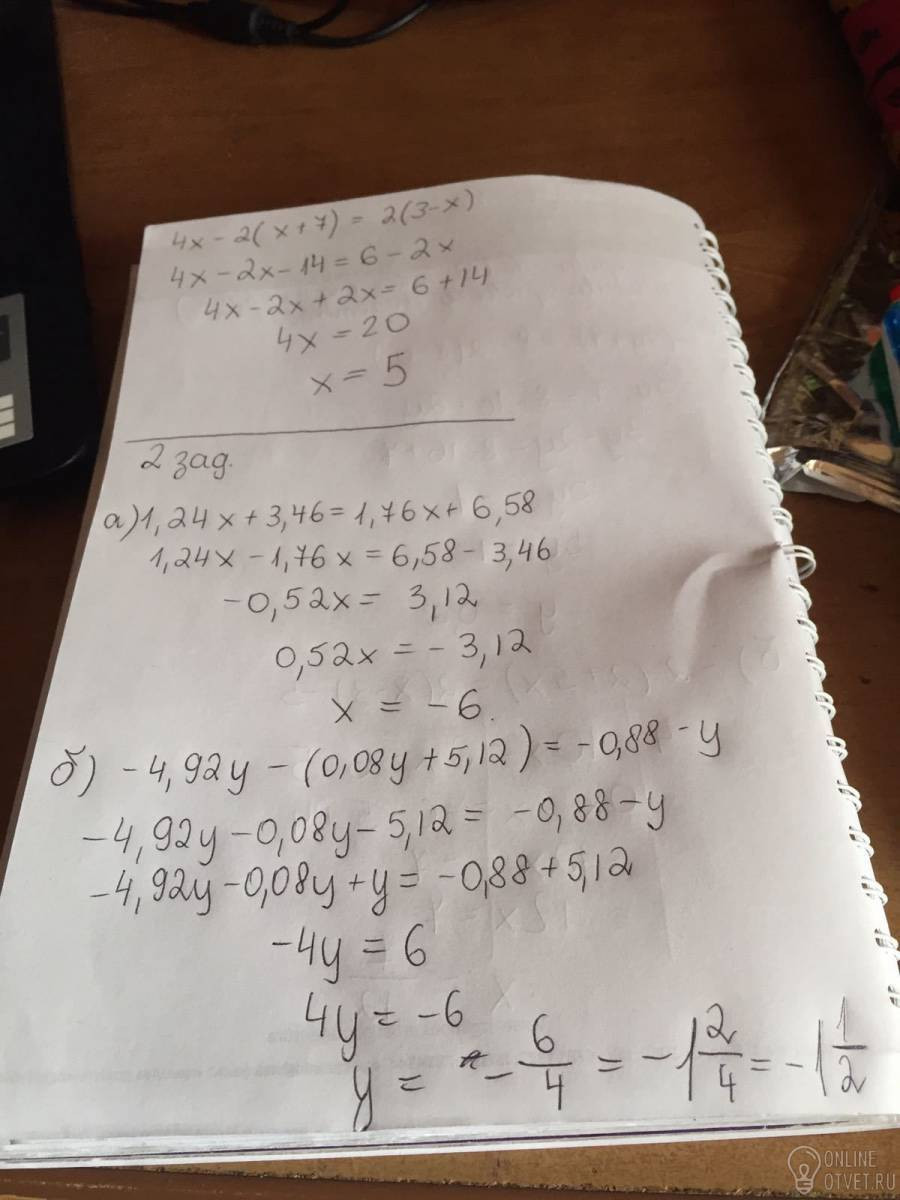 4x - 2(x+7) = 2(3-x)
4x - 2x - 14 = 6 - 2x
4x - 2x + 2x = 6 + 14
4x = 20
x = 5
2 зад.
а) 1,24x + 3,46 = 1,76x + 6,58
1,24x - 1,76x = 6,58 - 3,46
-0,52x = 3,12
0,52x = -3,12
x = -6.
б) -4,92y - (0,08y + 5,12) = -0,88 - y
-4,92y - 0,08y - 5,12 = -0,88 - y
-4,92y - 0,08y + y = -0,88 + 5,12
-4y = 6
4y = -6
y = - 6/4 = -1 2/4 = -1 1/2
ONLINE
OTVET.RU